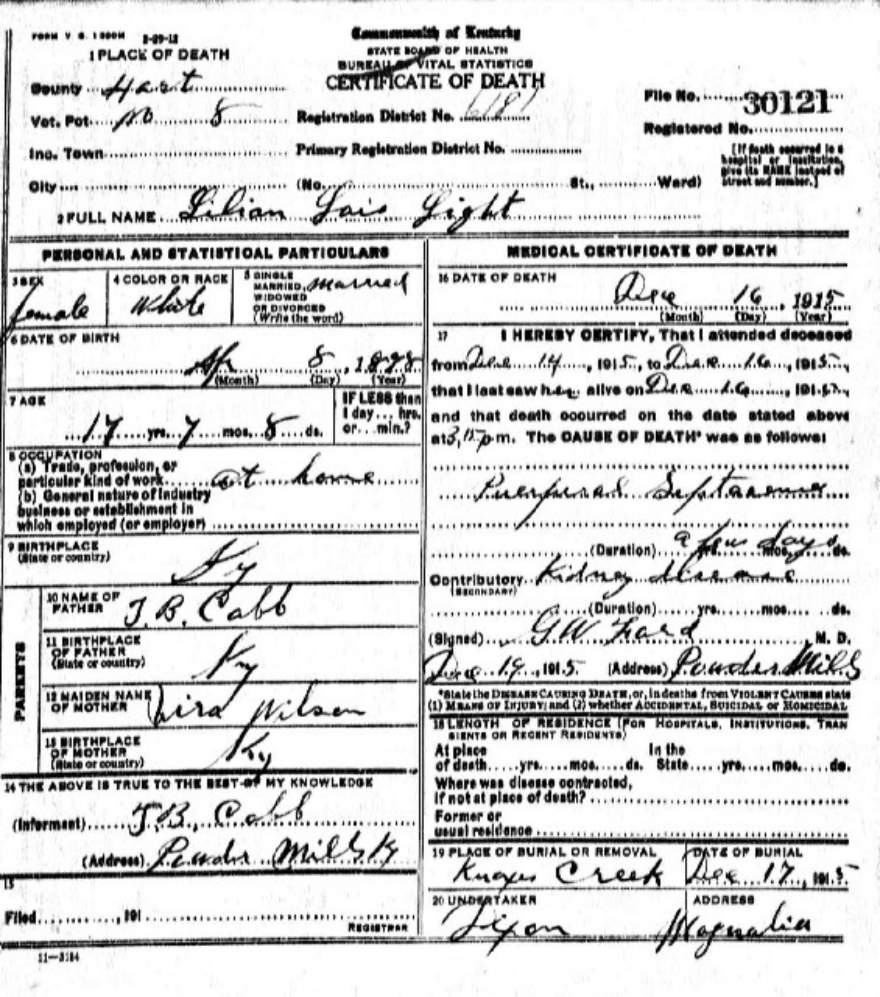 FORM V. S. 1 500M 3-29-12
Commonwealth of Kentucky
STATE BOARD OF HEALTH
BUREAU OF VITAL STATISTICS
CERTIFICATE OF DEATH
1 PLACE OF DEATH
County Hart
Vot. Pct. No 8
Registration District No. 618
File No. 30121
Registered No.
Inc. Town
Primary Registration District No.
City (No. St., Ward)
[If death occurred in a hospital or institution, give its NAME instead of street and number.]
2 FULL NAME Lilian Lois Light
PERSONAL AND STATISTICAL PARTICULARS
3 SEX
female
4 COLOR OR RACE
White
5 SINGLE
MARRIED,
WIDOWED
OR DIVORCED
(Write the word)
married
6 DATE OF BIRTH
Ap 8, 1898
(Month) (Day) (Year)
7 AGE
17 yrs. 7 mos. 8 ds.
IF LESS than
1 day... hrs.
or... min.?
8 OCCUPATION
(a) Trade, profession, or
particular kind of work at home
(b) General nature of industry
business or establishment in
which employed (or employer)
9 BIRTHPLACE
(State or country)
Ky
PARENTS
10 NAME OF
FATHER
J. B. Cabb
11 BIRTHPLACE
OF FATHER
(State or country)
Ky
12 MAIDEN NAME
OF MOTHER
Wilson
13 BIRTHPLACE
OF MOTHER
(State or country)
Ky
14 THE ABOVE IS TRUE TO THE BEST OF MY KNOWLEDGE
(Informant) J. B. Cabb
(Address) Powder Mills Ky
15
Filed, 191
REGISTRAR
11-3184
MEDICAL CERTIFICATE OF DEATH
16 DATE OF DEATH
Dec 16, 1915
(Month) (Day) (Year)
17 I HEREBY CERTIFY, That I attended deceased
from Dec 14, 1915, to Dec 16, 1915,
that I last saw her alive on Dec 16, 1915,
and that death occurred on the date stated above
at 3,15 pm. The CAUSE OF DEATH* was as follows:
Puerpural Septacemia
(Duration) a few days yrs. mos. ds.
Contributory Kidney disease
(SECONDARY)
(Duration) yrs. mos. ds.
(Signed) G W M. D.
Dec 19, 1915 (Address) Powder Mills
*State the DISEASE CAUSING DEATH, or, in deaths from VIOLENT CAUSES state
(1) MEANS OF INJURY; and (2) whether ACCIDENTAL, SUICIDAL or HOMICIDAL
18 LENGTH OF RESIDENCE (FOR HOSPITALS, INSTITUTIONS, TRAN
SIENTS OR RECENT RESIDENTS)
At place In the
of death yrs. mos. ds. State yrs. mos. ds.
Where was disease contracted,
if not at place of death?
Former or
usual residence
19 PLACE OF BURIAL OR REMOVAL
Knoxes Creek
DATE OF BURIAL
Dec 17, 1915
20 UNDERTAKER
Dixon
ADDRESS
Magnolia